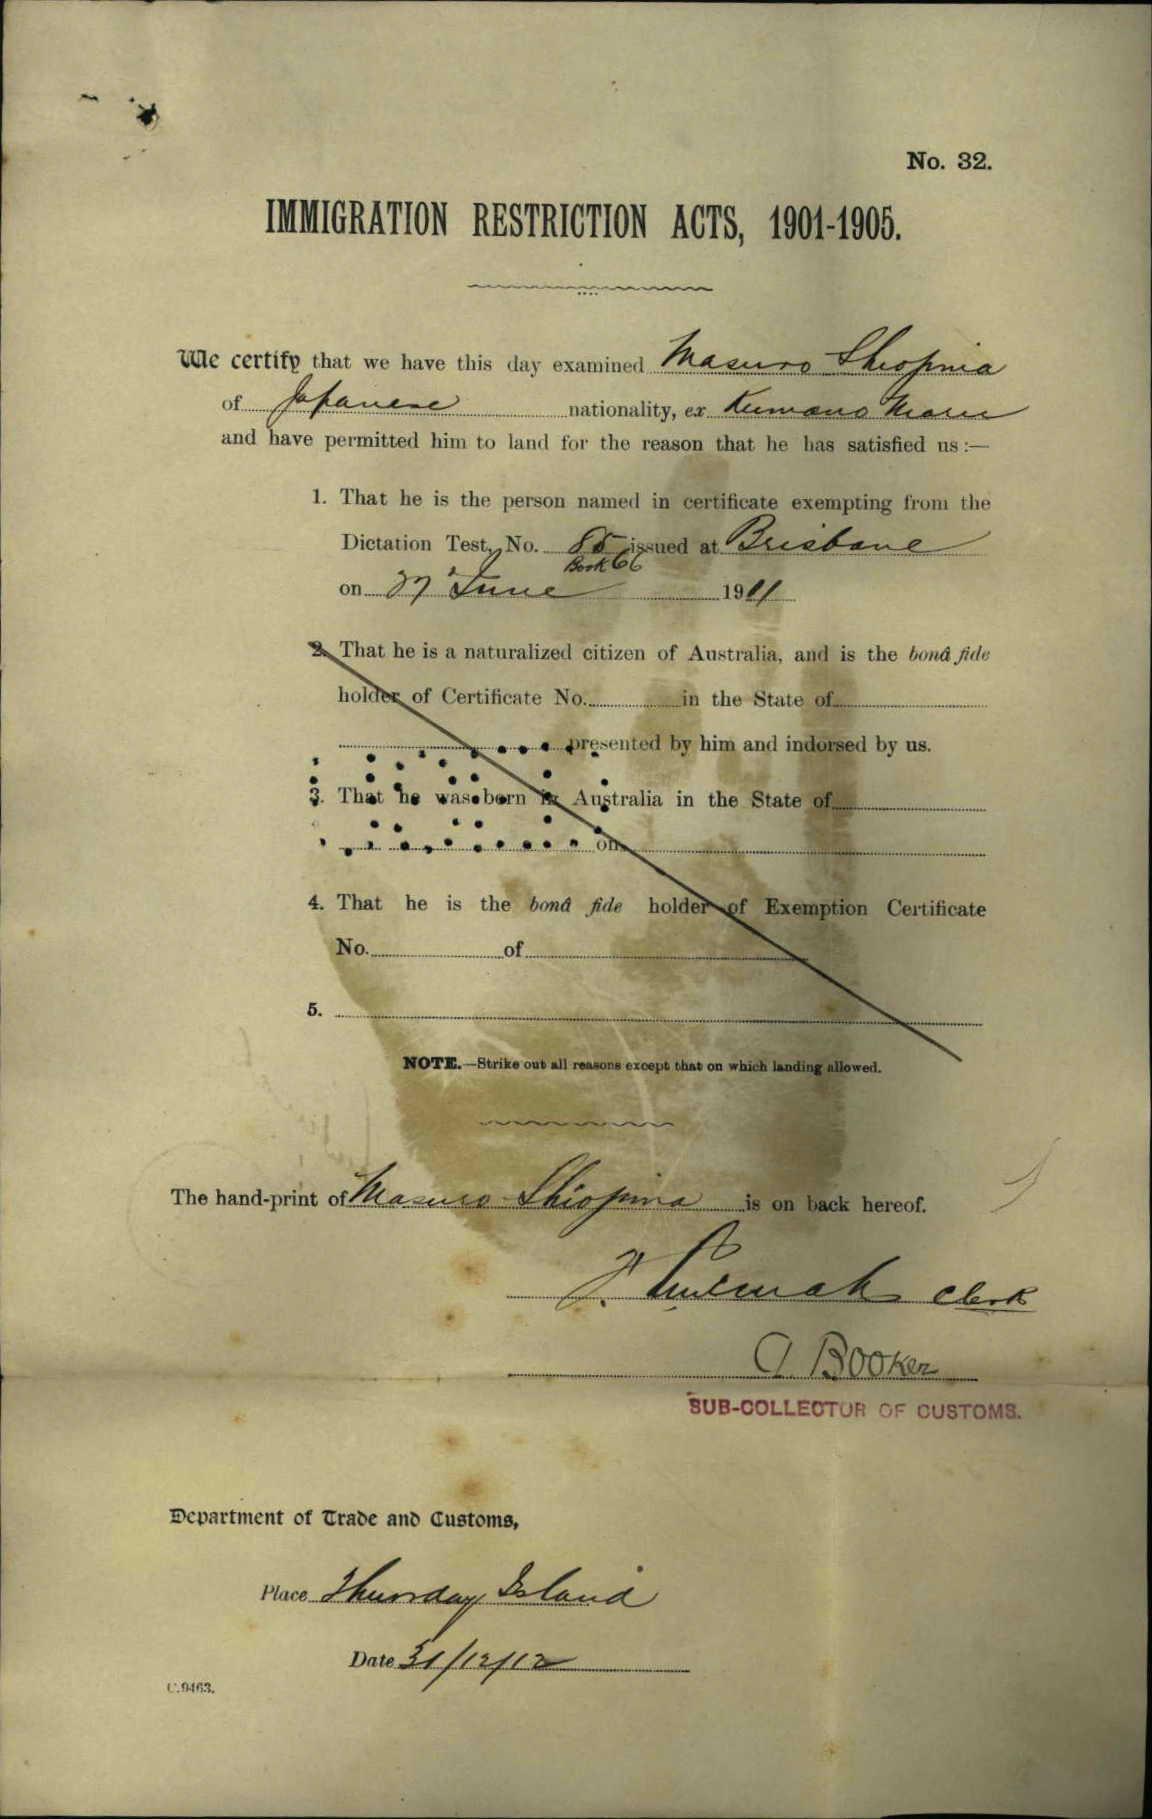 No. 32.
IMMIGRATION RESTRICTION ACTS, 1901-1905.
We certify that we have this day examined Masuro Shiopina
of Japanese nationality, ex Kumano Maru
and have permitted him to land for the reason that he has satisfied us:—
1. That he is the person named in certificate exempting from the
Dictation Test, No. 85 issued at Brisbane
Book 66
on 27 June 1911
2. That he is a naturalized citizen of Australia, and is the bonâ fide
holder of Certificate No. in the State of
presented by him and indorsed by us.
3. That he was born in Australia in the State of
on
4. That he is the bonâ fide holder of Exemption Certificate
No. of
5.
NOTE.—Strike out all reasons except that on which landing allowed.
The hand-print of Masuro Shiopina is on back hereof.
Clerk
A Booker
SUB-COLLECTOR OF CUSTOMS.
Department of Trade and Customs,
Place Thursday Island
Date 31/12/12
C.9463.